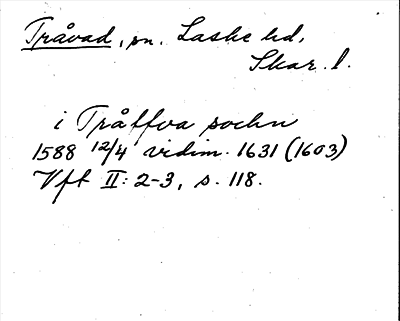 Tråvad, sn. Laske hd,
Skar. l.
i Tråffva sochn
1588 12/4 vidim. 1631 (1603)
Vft II: 2-3, s. 118.